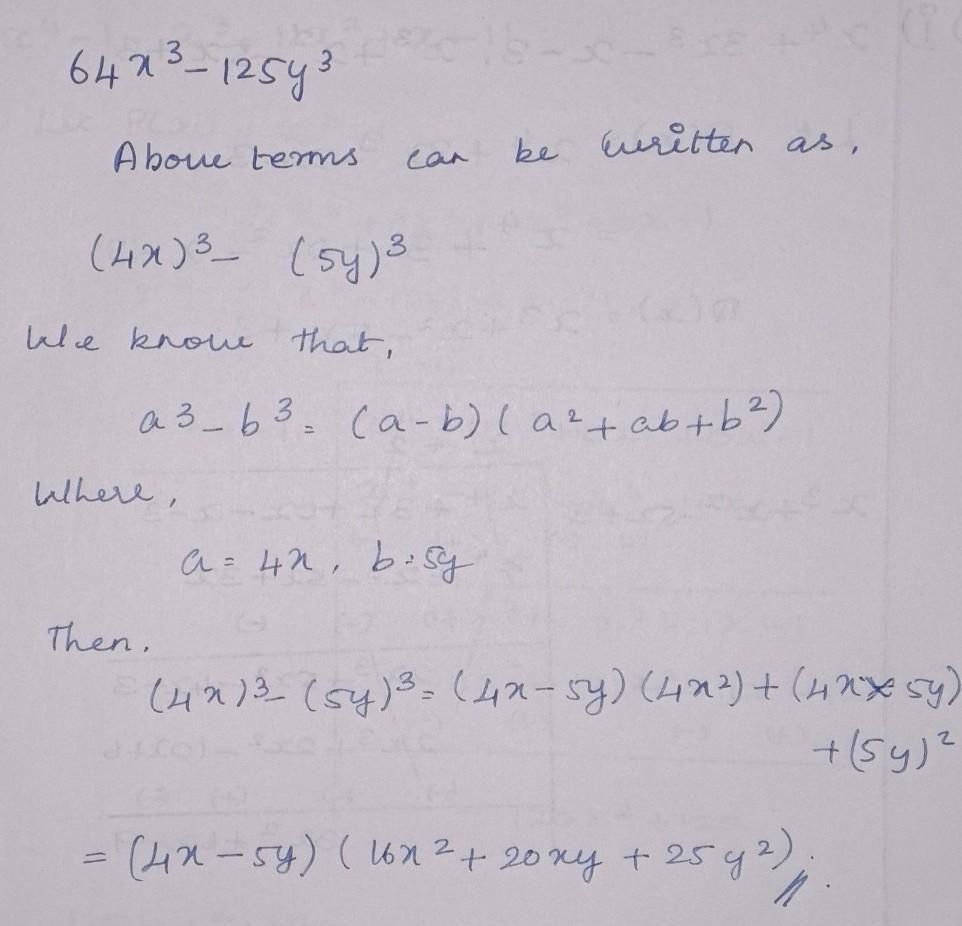 64x³ - 125y³
Above terms can be written as,
(4x)³ - (5y)³
We know that,
a³ - b³ = (a - b) (a² + ab + b²)
Where,
a = 4x, b = 5y
Then,
(4x)³ - (5y)³ = (4x - 5y) (4x²) + (4x × 5y)
+ (5y)²
= (4x - 5y) (16x² + 20xy + 25y²)